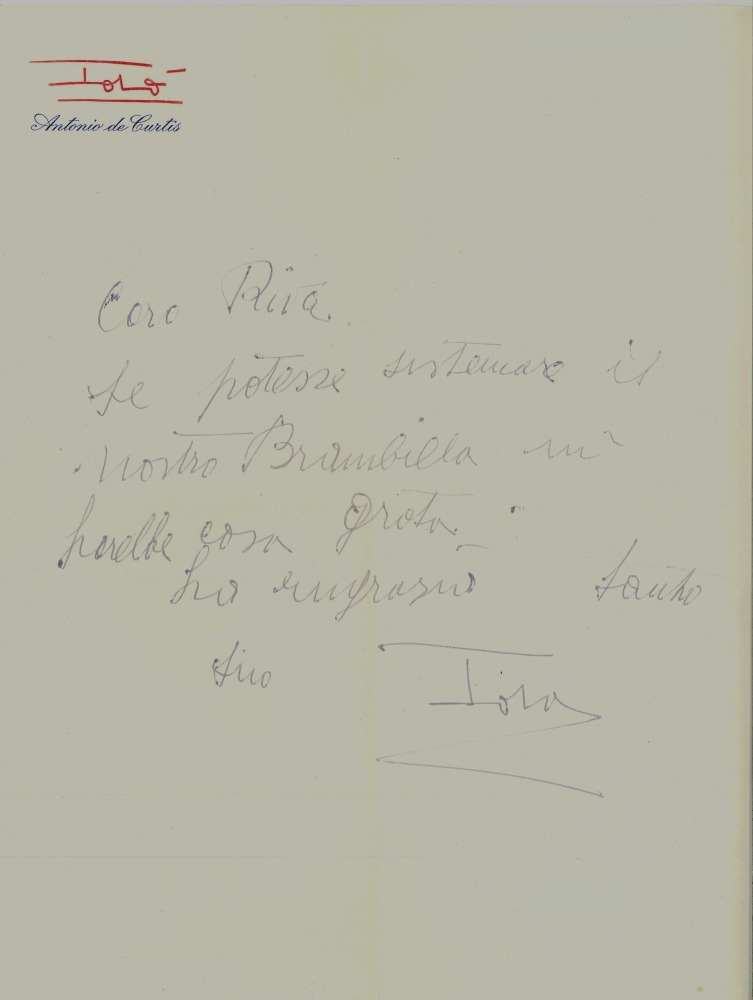 Totò
Antonio de Curtis
Caro Riva
Se potesse sistemare il
nostro Brambilla mi
farebbe cosa grata.
La ringrazio tanto
Suo Totò